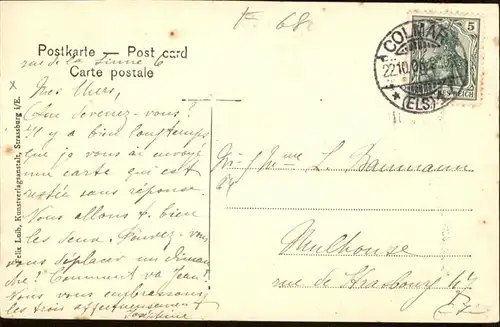 K 68
Postkarte — Post card
Carte postale
rue de la Sinne 6
Mes chers,
Que devenez-vous?
Il y a bien longtemps
que je vous ai envoyé
une carte qui est
restée sans réponse.
Nous allons bien
les deux. Pouvez-vous
vous déplacer un diman
che? Comment va Jean?
Nous vous embrassons
les trois affectueusement
Joséphine
Felix Luib, Kunstverlagsanstalt, Strassburg i/E.
COLMAR
22.10.08
(ELS)
5
REICH
Mme L. Baumann
Mulhouse
rue de Strasbourg